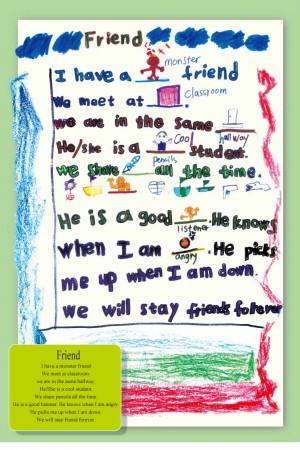 Friend
I have a monster friend
We meet at classroom.
we are in the same hallway
He/she is a cool student.
we share pencils all the time.
He is a good listener. He knows
when I am angry. He picks
me up when I am down.
we will stay friends forever
Friend
I have a monster friend
We meet at classroom.
we are in the same hallway
He/She is a cool student.
We share pencils all the time.
He is a good listener. He knows when I am angry.
He picks me up when I am down.
We will stay friend forever.